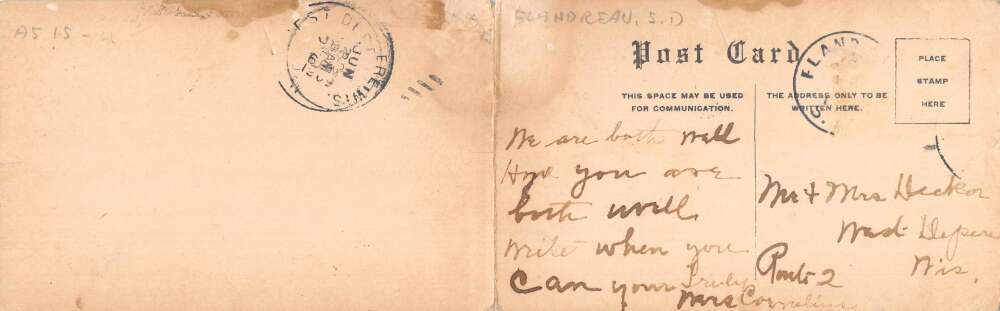 A5 15 - 4
WEST DE PERE, WIS.
JUN
FLANDREAU, S.D
Post Card
FLAND
S.
PLACE
STAMP
HERE
THIS SPACE MAY BE USED
FOR COMMUNICATION.
THE ADDRESS ONLY TO BE
WRITTEN HERE.
We are both well
Hope you are
both well.
Write when you
can your Truly
Mrs Cornelius
Mr + Mrs Decker
West Depere
Wis.
Route 2